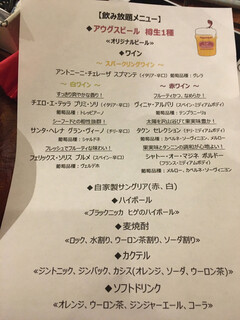 【飲み放題メニュー】
◆アウグスビール 樽生1種
≪オリジナルビール≫
◆ワイン
～ スパークリングワイン ～
アントニーニ・チェレーザ スプマンテ (イタリア・辛口) 葡萄品種：グレラ
～ 白ワイン ～
～ 赤ワイン ～
すっきり爽やかな香り！
フルーティか、なめらか！
チエロ・エ・テッラ プリミ・ソリ (イタリア・辛口)
ヴィニャ・アルバリ (スペイン・ミディアムボディ)
葡萄品種：トレッビアーノ
シーフードとの相性抜群！
サンタ・ヘレナ グラン・ヴィーノ (チリ・辛口)
タケン セレクション (チリ・ミディアムボディ)
葡萄品種：シャルドネ
フレッシュでフルーティな味わい！
果実味とタンニンの調和が心地いい！
フェリックス・ソリス ブルメ (スペイン・辛口)
シャトー・オー・マジネ ボルドー
(フランス・ミディアムボディ)
葡萄品種：ヴェルデホ
◆自家製サングリア(赤、白)
◆ハイボール
≪ブラックニッカ ヒゲのハイボール≫
◆麦焼酎
≪ロック、水割り、ウーロン茶割り、ソーダ割り≫
◆カクテル
≪ジントニック、ジンバック、カシス(オレンジ、ソーダ、ウーロン茶)≫
◆ソフトドリンク
≪オレンジ、ウーロン茶、ジンジャーエール、コーラ≫